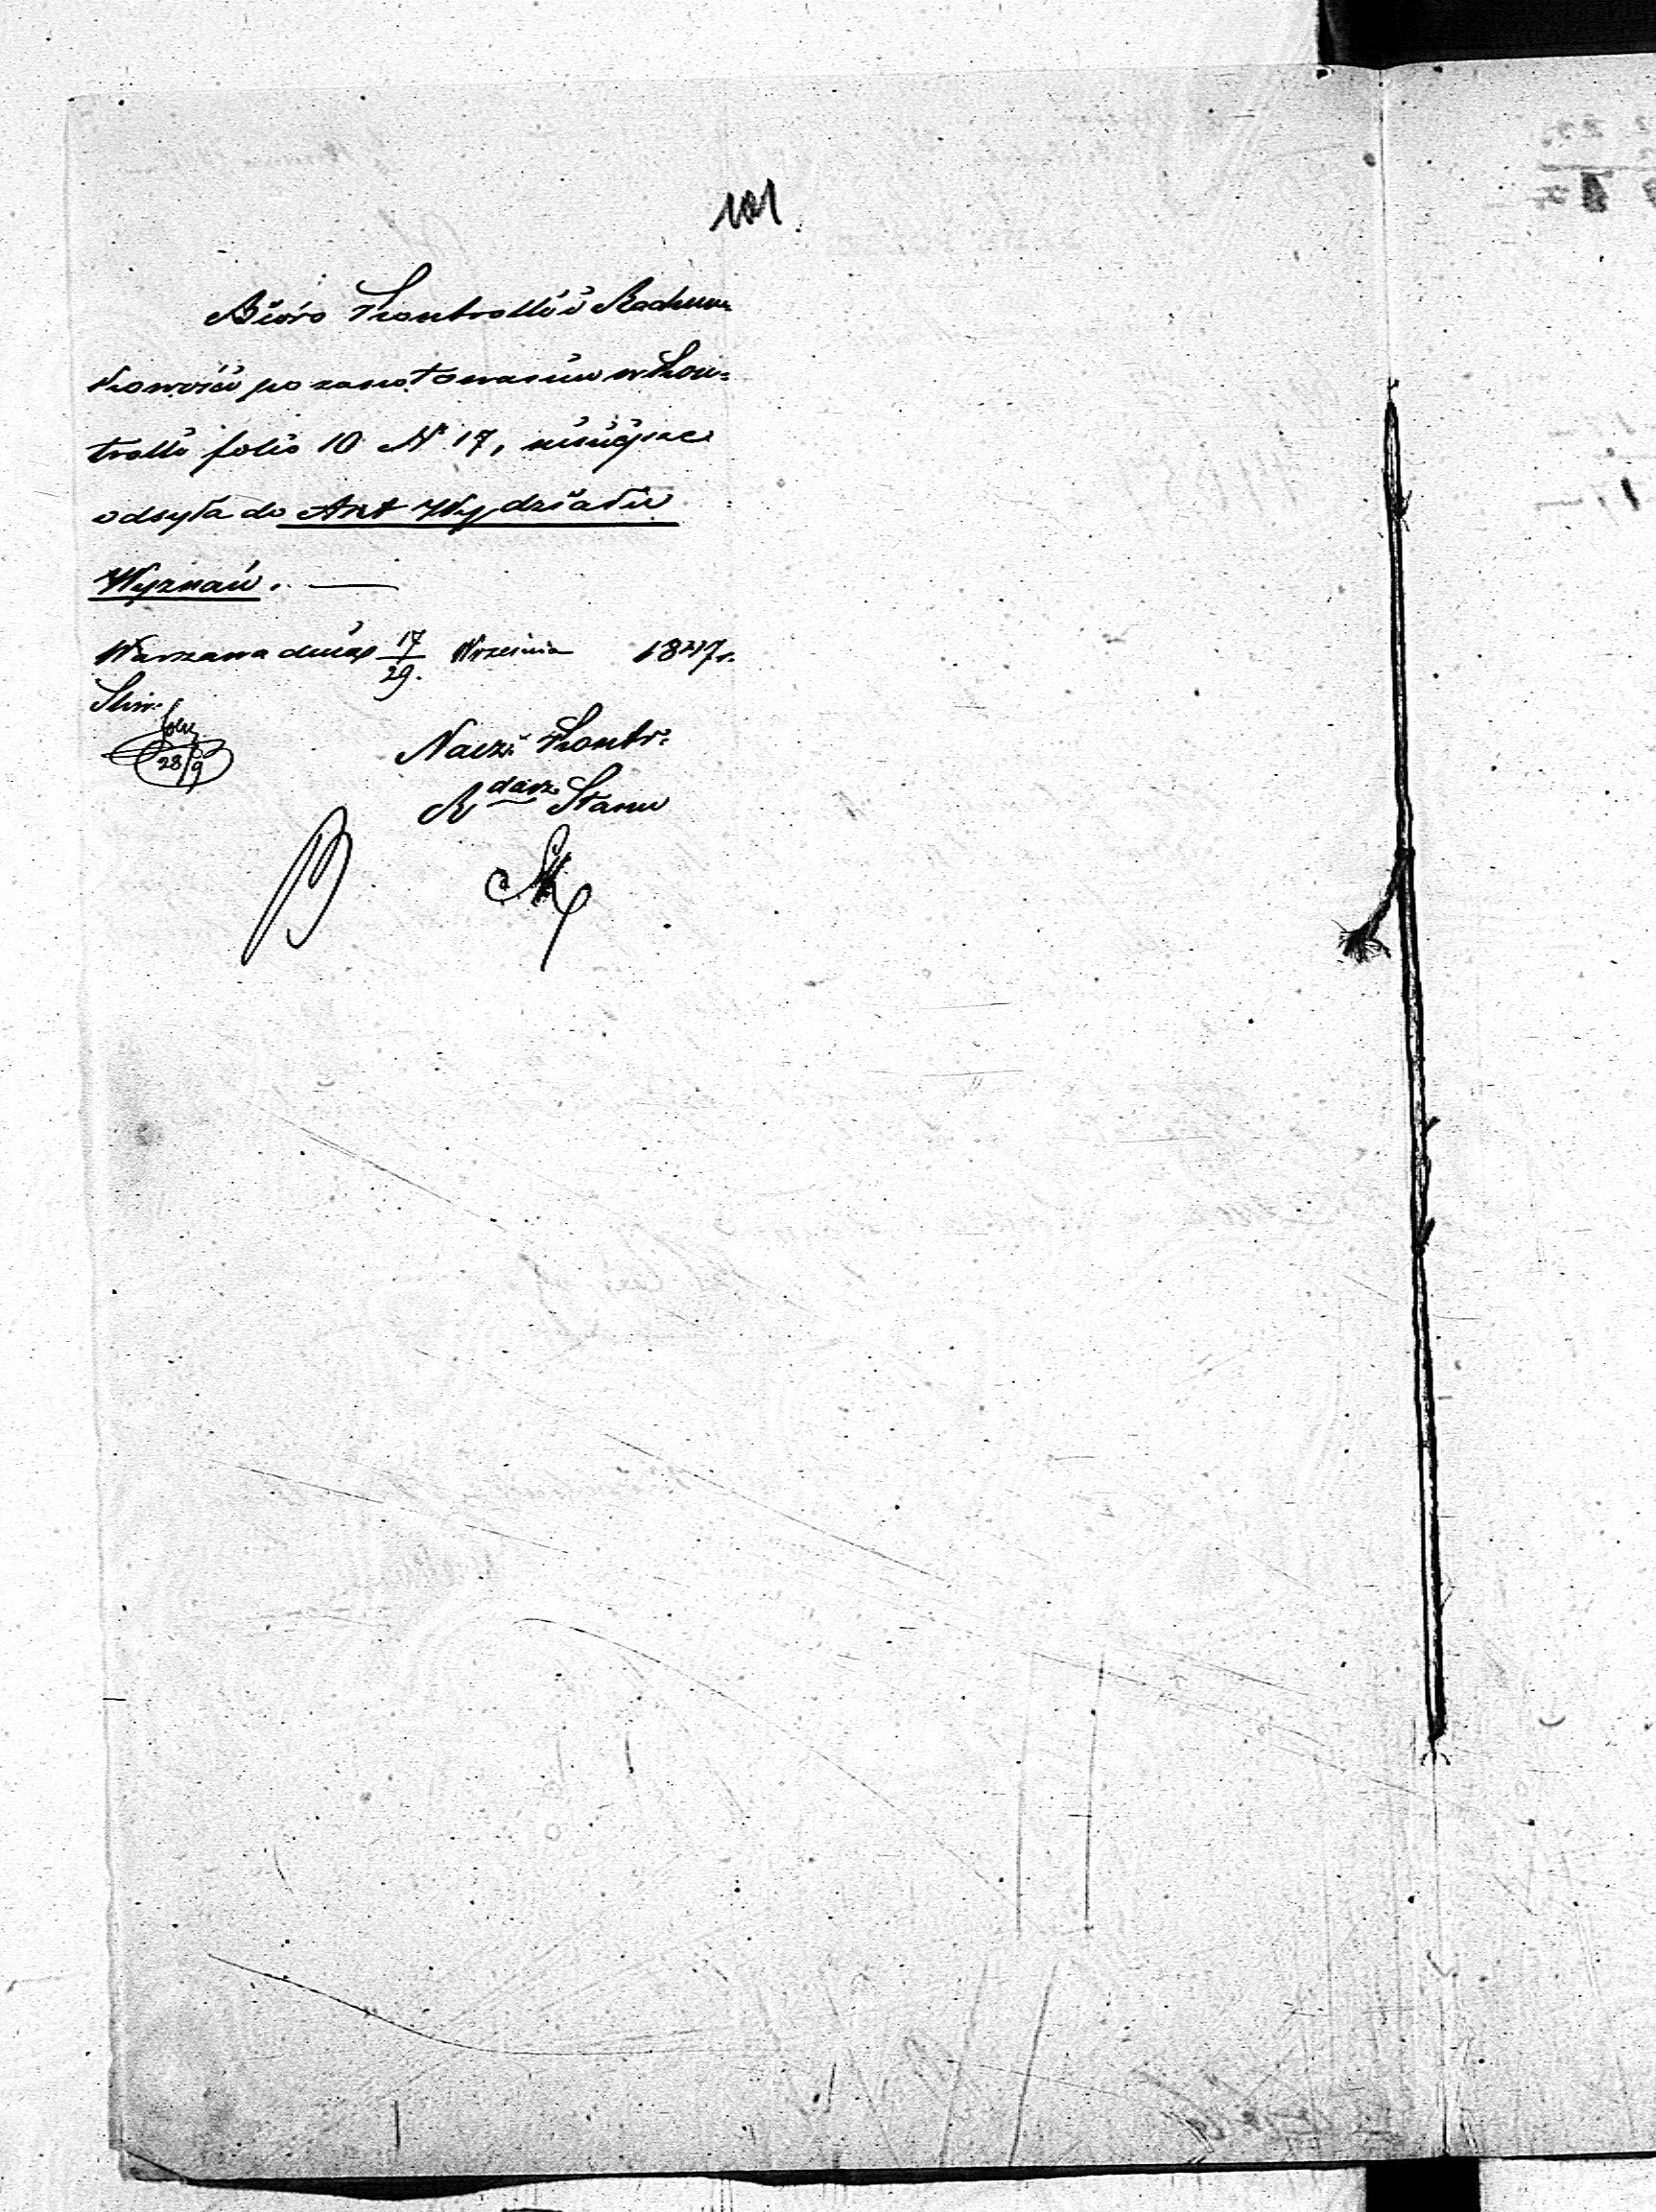 101
Bióro Kontrolli i Rachun-
kowości po zanotowaniu w Kon-
trolli folio 10 N° 17, niniejsze
odsyła do Akt Wydziału
Wyznań.
Warszawa dnia 17/29. Września 1847 r.
28/9
Nacz: Kontr:
R dzca Stanu